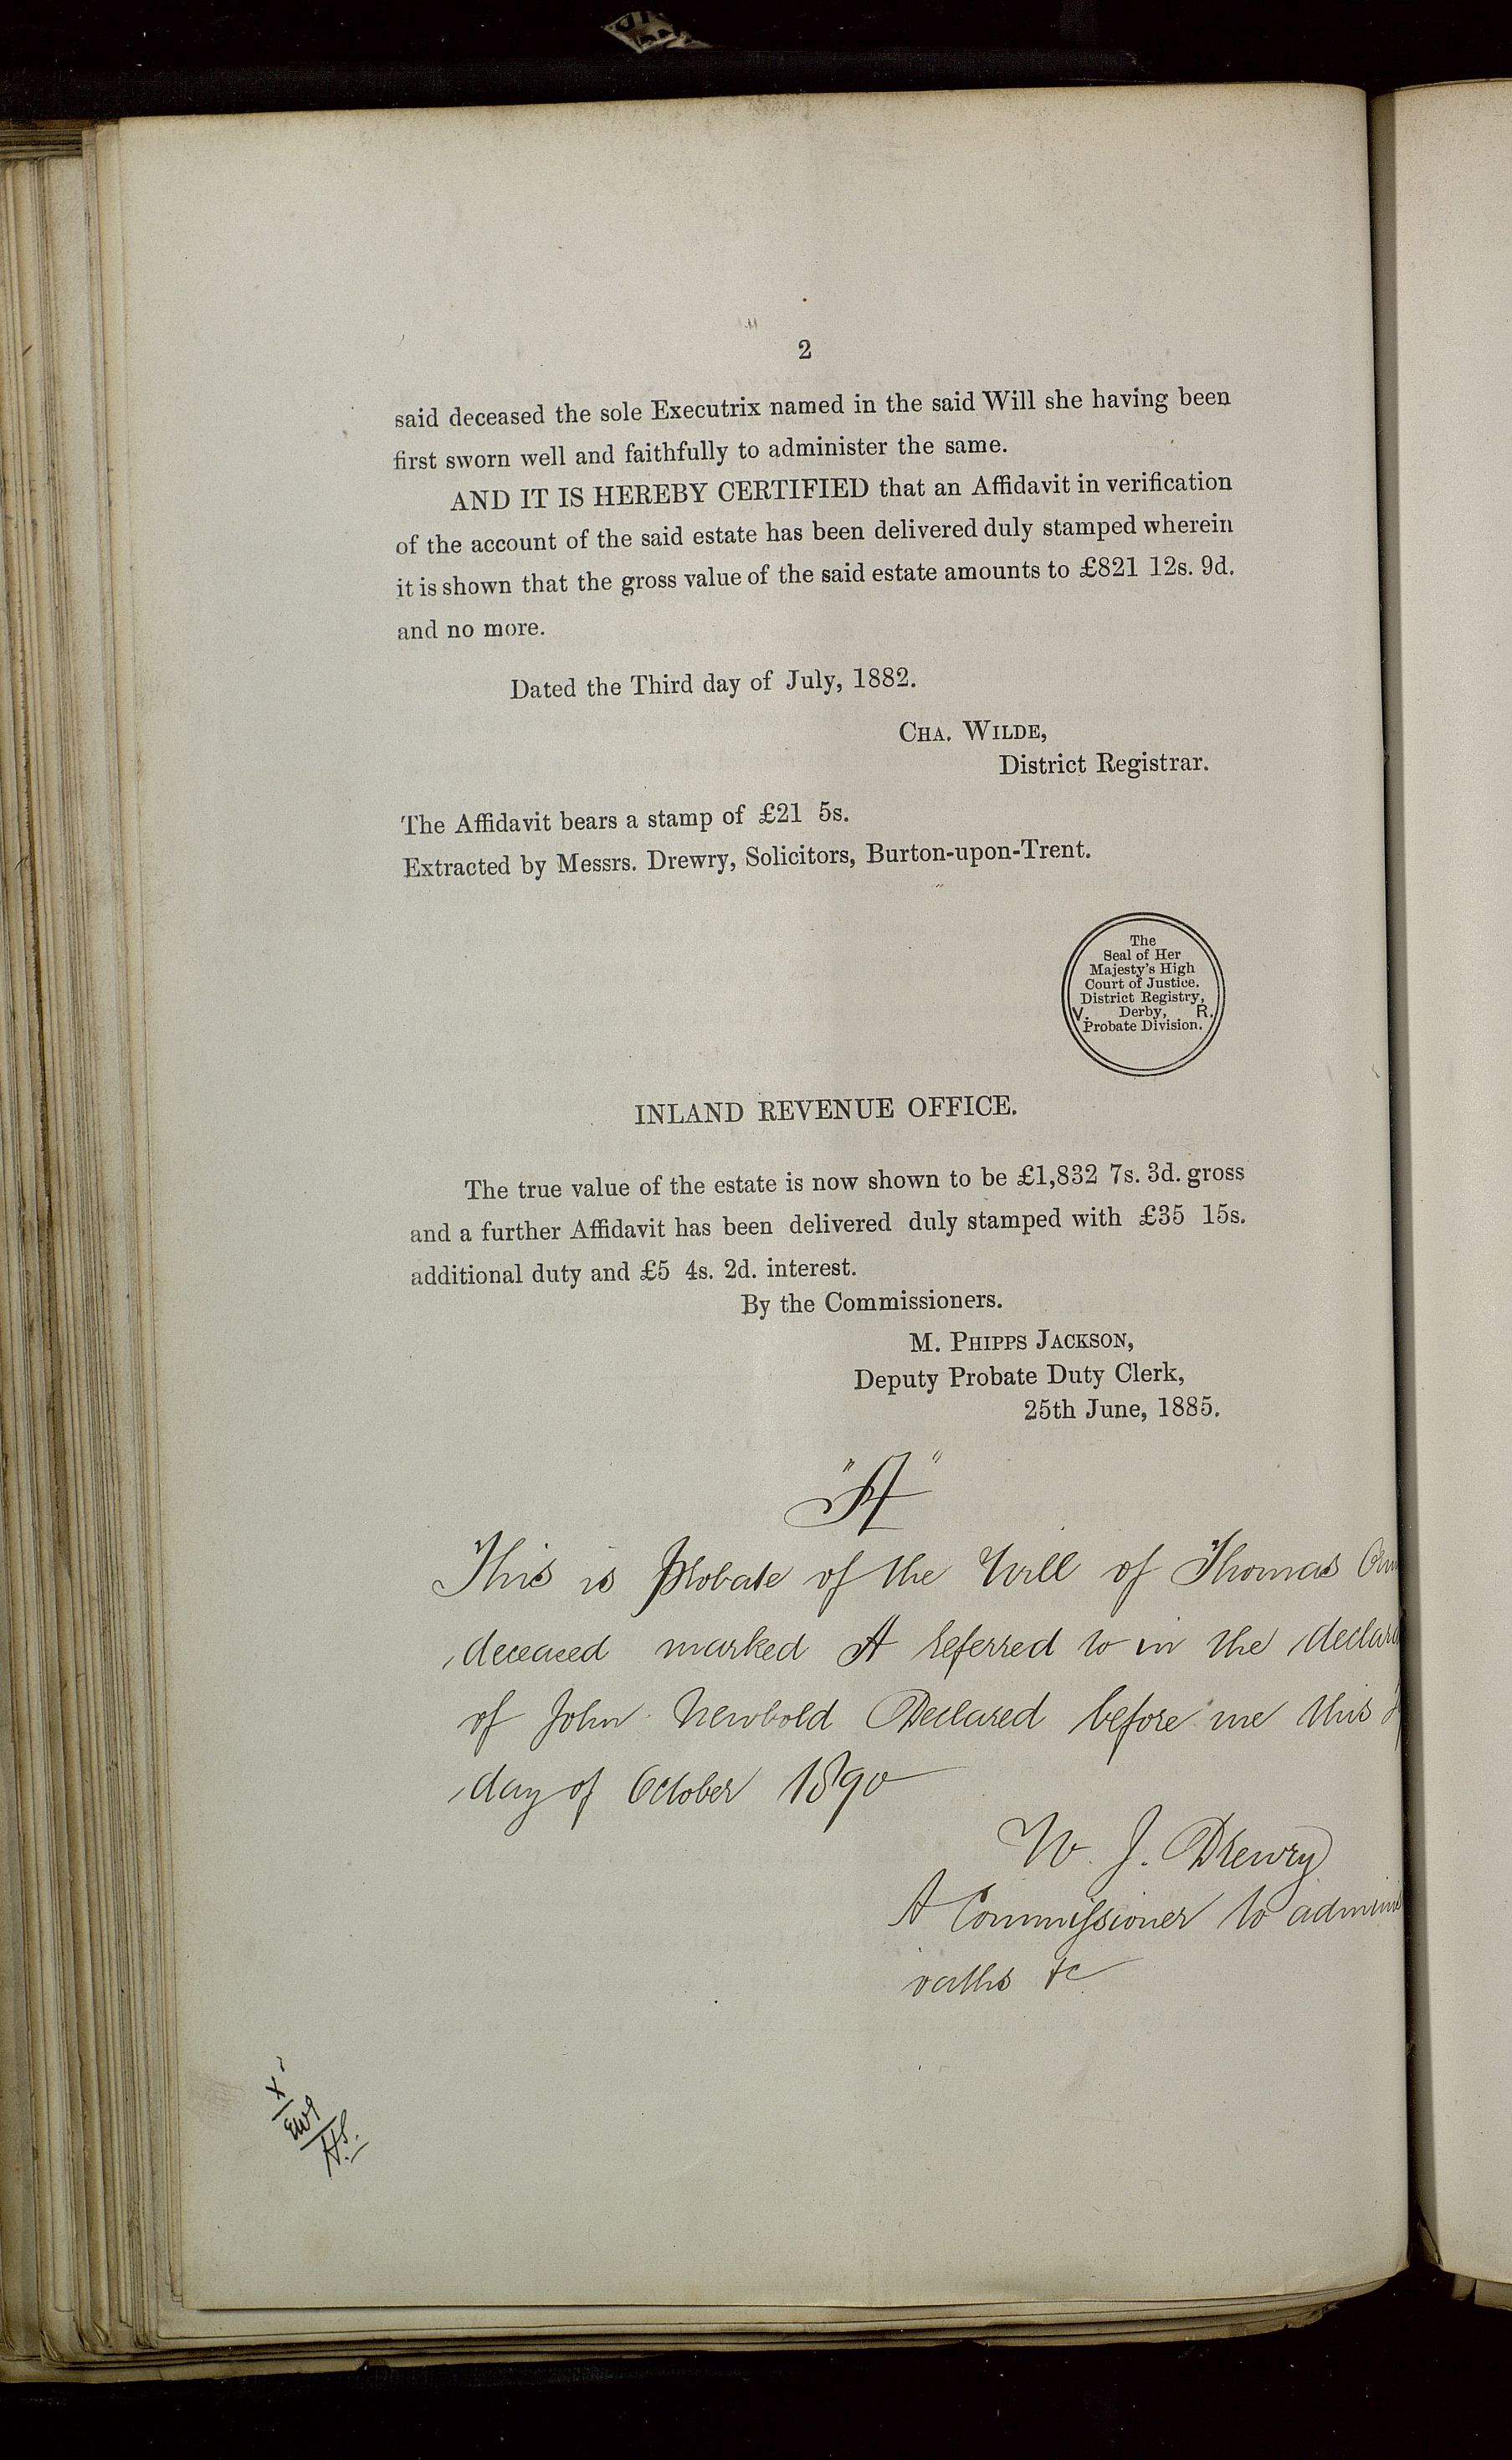 2
said deceased the sole Executrix named in the said Will she having been
first sworn well and faithfully to administer the same.
AND IT IS HEREBY CERTIFIED that an Affidavit in verification
of the account of the said estate has been delivered duly stamped wherein
it is shown that the gross value of the said estate amounts to £821 12s. 9d.
and no more.
Dated the Third day of July, 1882.
CHA. WILDE,
District Registrar.
The Affidavit bears a stamp of £21 5s.
Extracted by Messrs. Drewry, Solicitors, Burton-upon-Trent.
The
Seal of Her
Majesty's High
Court of Justice.
District Registry,
V. Derby, R.
Probate Division.
INLAND REVENUE OFFICE.
The true value of the estate is now shown to be £1,832 7s. 3d. gross
and a further Affidavit has been delivered duly stamped with £35 15s.
additional duty and £5 4s. 2d. interest.
By the Commissioners.
M. PHIPPS JACKSON,
Deputy Probate Duty Clerk,
25th June, 1885.
"A"
This is Probate of the Will of Thomas
deceased marked A referred to in the
of John Newbold Declared before me this
day of October 1890
W. J. Drewry
A Commissioner to
oaths &c